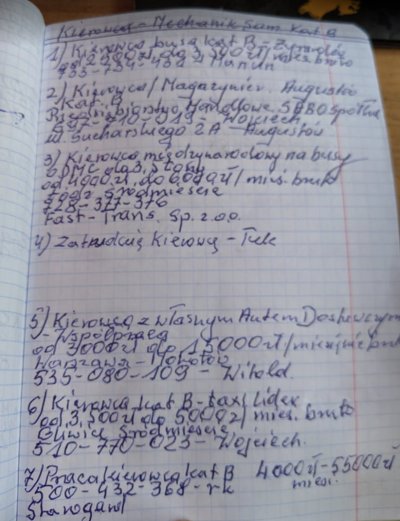 Kierowca - Mechanik Sam. kat B
1) Kierowca busa kat B -
od 2900zł do 3 300zł / mies. brutto
733-754-432
2) Kierowca / Magazynier. Augustów
Kat. B
Przedsiębiorstwo Handlowe
Wojciech
ul. Sucharskiego 2A - Augustów
3) Kierowca międzynarodowy na busy
DMC do 3,5 tony
od 4000zł do 6000zł / mies. brutto
Śródmieście
728-377-376
Fast-Trans. Sp. z o.o.
4) Zatrudnię Kierowcę -
5) Kierowca z własnym Autem Dostawczym
- Współpraca
od 9000zł do 15000zł / miesięcznie
Warszawa - Mokotów
535-080-109 - Witold.
6) Kierowca kat B - taxi Lider
od 3,500zł do 5000zł / mies. brutto
Gliwice Śródmieście
510-770-023 - Wojciech.
7) Praca kierowca kat B 4000zł-55000zł
500-432-368 - mies.
Starogard